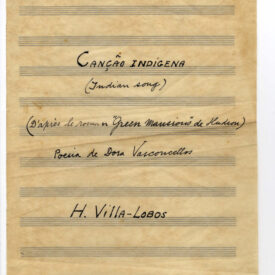 CANÇÃO INDÍGENA
(Indian song)
(D'après le roman "Green Mansions" de Hudson)
Poesia de Dora Vasconcellos
H. VILLA-LOBOS